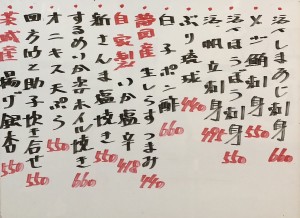 活〆しまあじ刺身 660
メジ鮪刺身 550
活〆ほうぼう刺身 550
活帆立刺身 495
ぶり琉球 440
白子ポン酢 660
静岡産 生しらすつまみ 440
自家製 いか塩辛 418
新さんま塩焼き 550
するめいかホイル焼き 660
オニキス天ぷら 550
助子炊き合せ 550
茨城産 揚げ銀杏 550